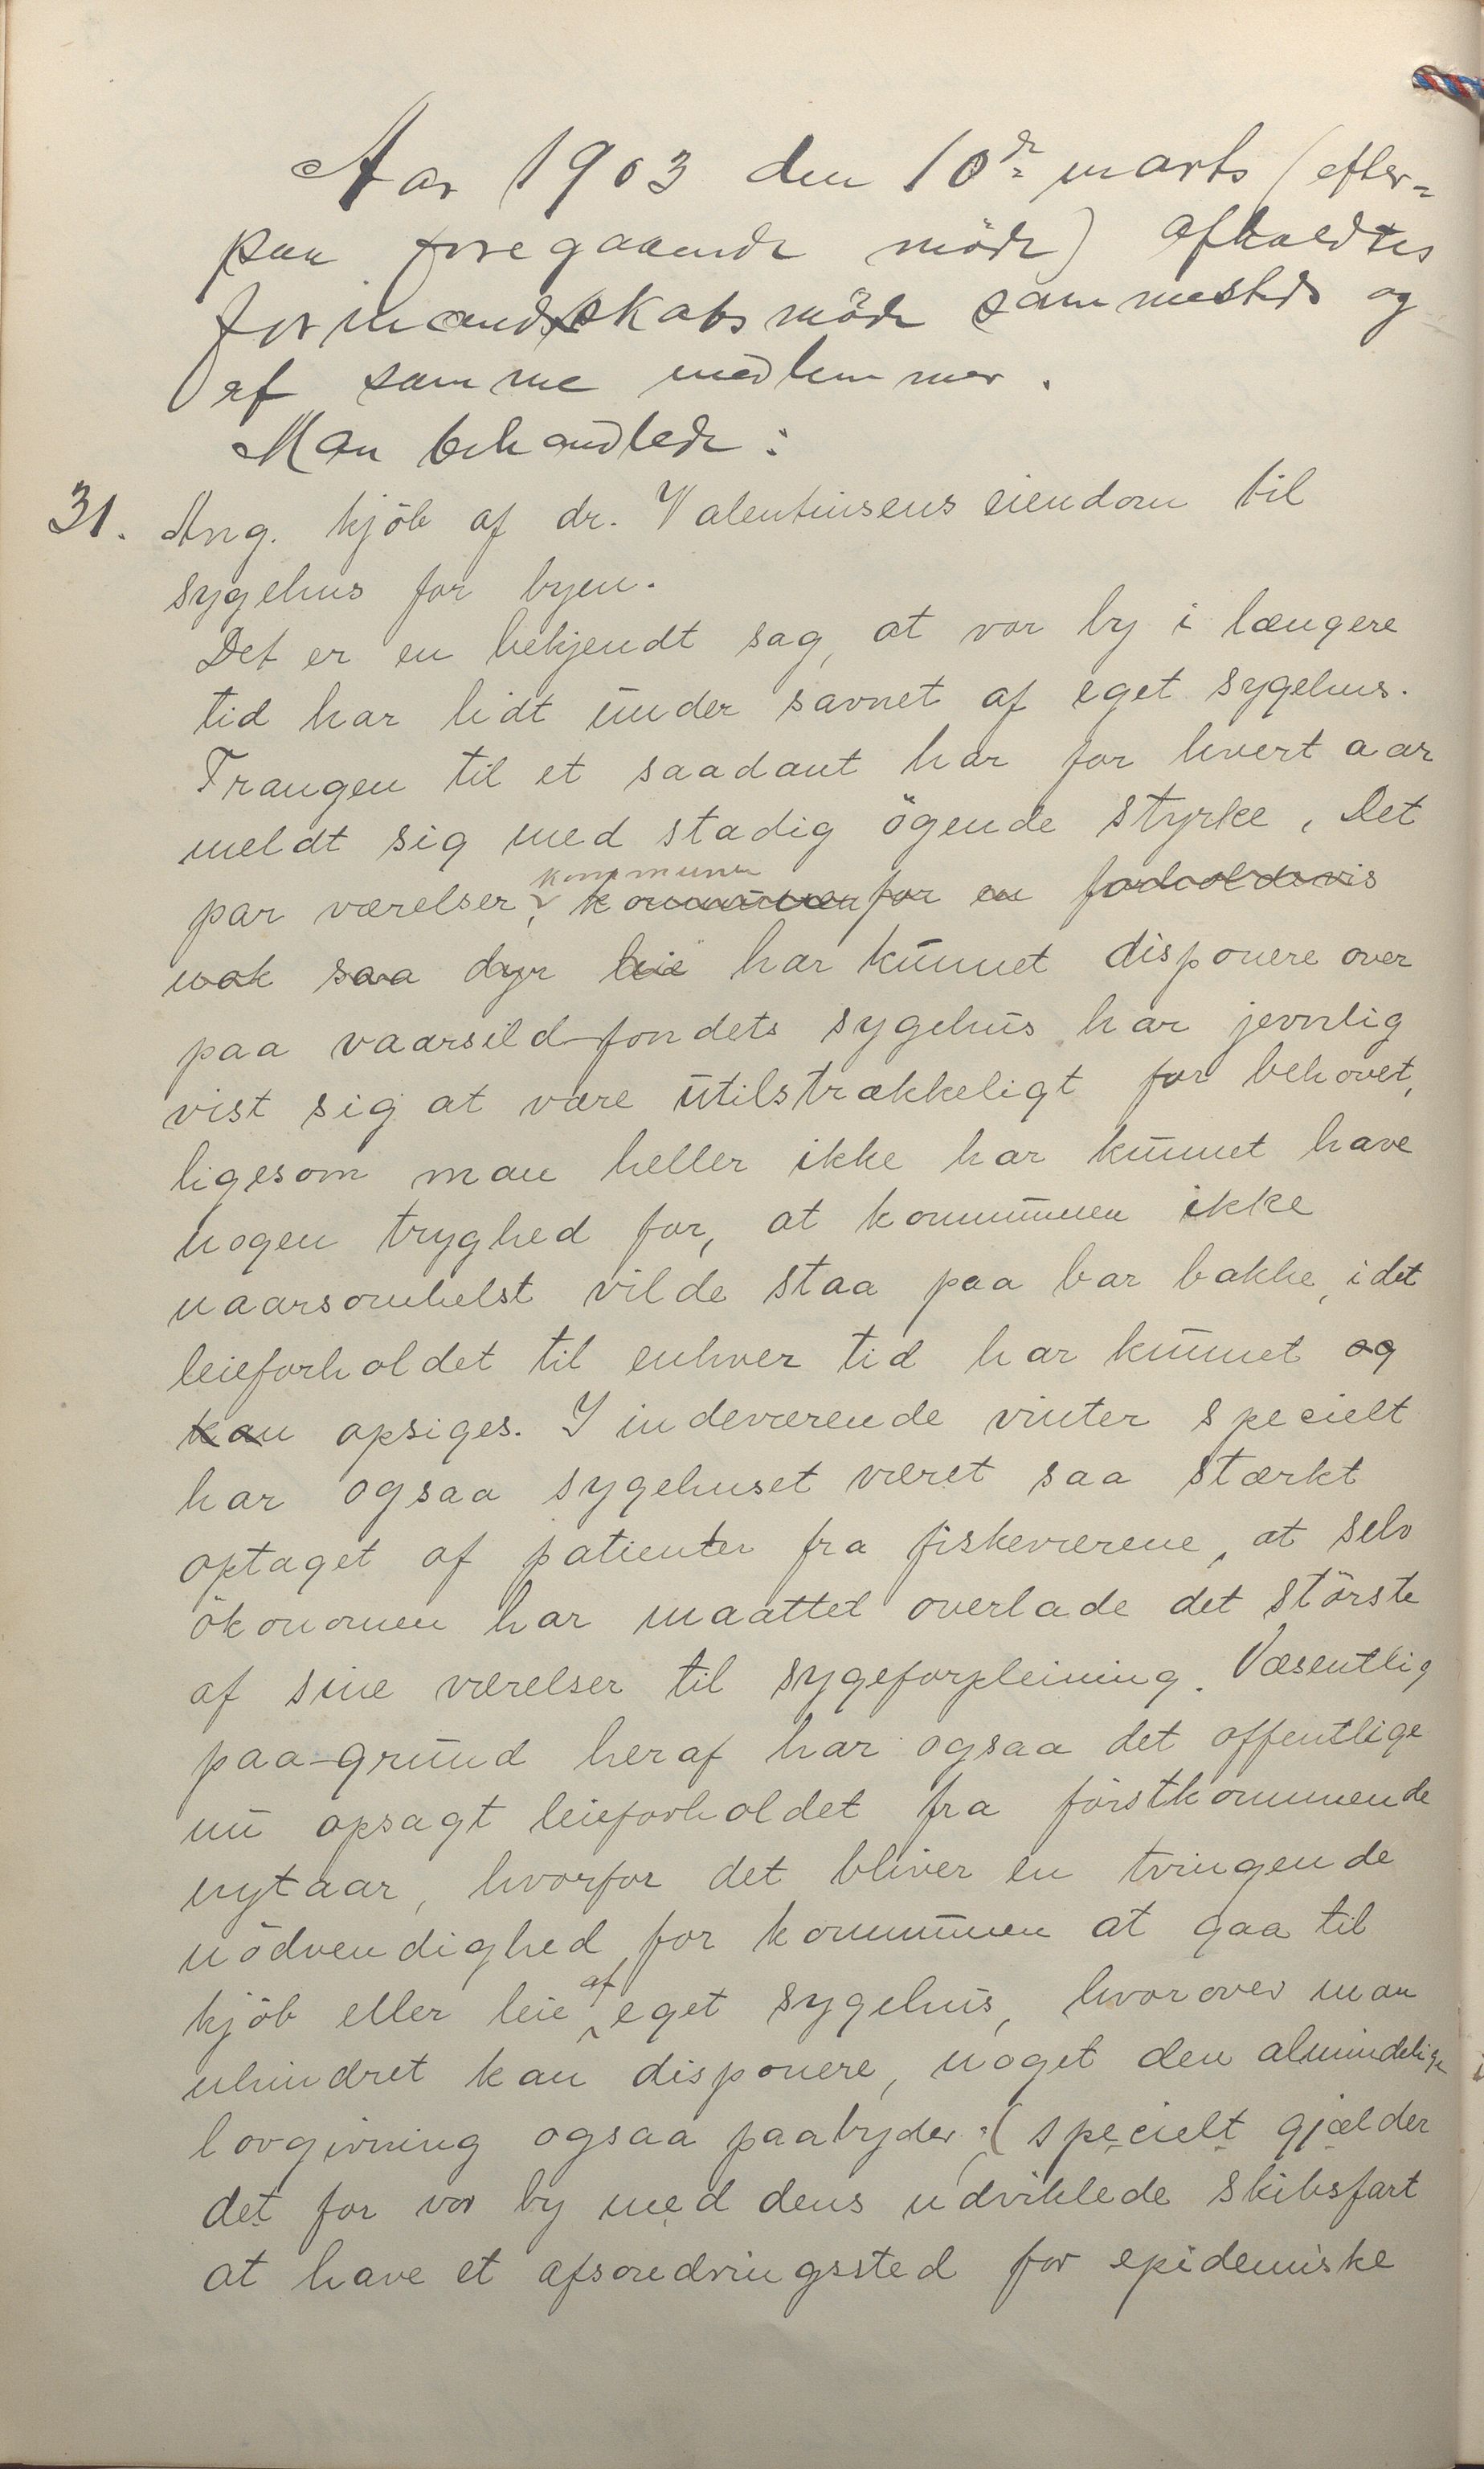 Aar 1903 den 10de marts (efter-
paa foregaaende möde) afholdtes
formandskabsmöde sammesteds og
af samme medlemmer.
Man behandlede:
31. Ang. kjöb af dr. Valentinsens eiendom til
sygehus for byen.
Det er en bekjendt sag, at vor by i længere
tid har lidt under savnet af eget sygehus.
Trangen til et saadant har for hvert aar
meldt sig med stadig ögende styrke. Det
kommunen
par værelser, kommunen for en forholdsvis
nok saa dyr leie har kunnet disponere over
paa vaarsildfondets sygehus har jevnlig
vist sig at være utilstrækkeligt for behovet,
ligesom man heller ikke har kunnet have
nogen tryghed for, at kommunen ikke
naarsomhelst vilde staa paa bar bakke, idet
leieforholdet til enhver tid har kunnet og
kan opsiges. I indeværende vinter specielt
har ogsaa sygehuset været saa stærkt
optaget af patienter fra fiskeværene, at selv
ökonomen har maattet overlade det störste
af sine værelser til sygeforpleining. Væsentlig
paa grund heraf har ogsaa det offentlige
nu opsagt leieforholdet fra förstkommende
nytaar, hvorfor det bliver en tvingende
nödvendighed for kommunen at gaa til
af
kjöb eller leie eget sygehus, hvorover man
uhindret kan disponere, noget den almindelige
lovgivning ogsaa paabyder; (specielt gjælder
det for vor by med dens udviklede skibsfart
at have et afsondringssted for epidemiske